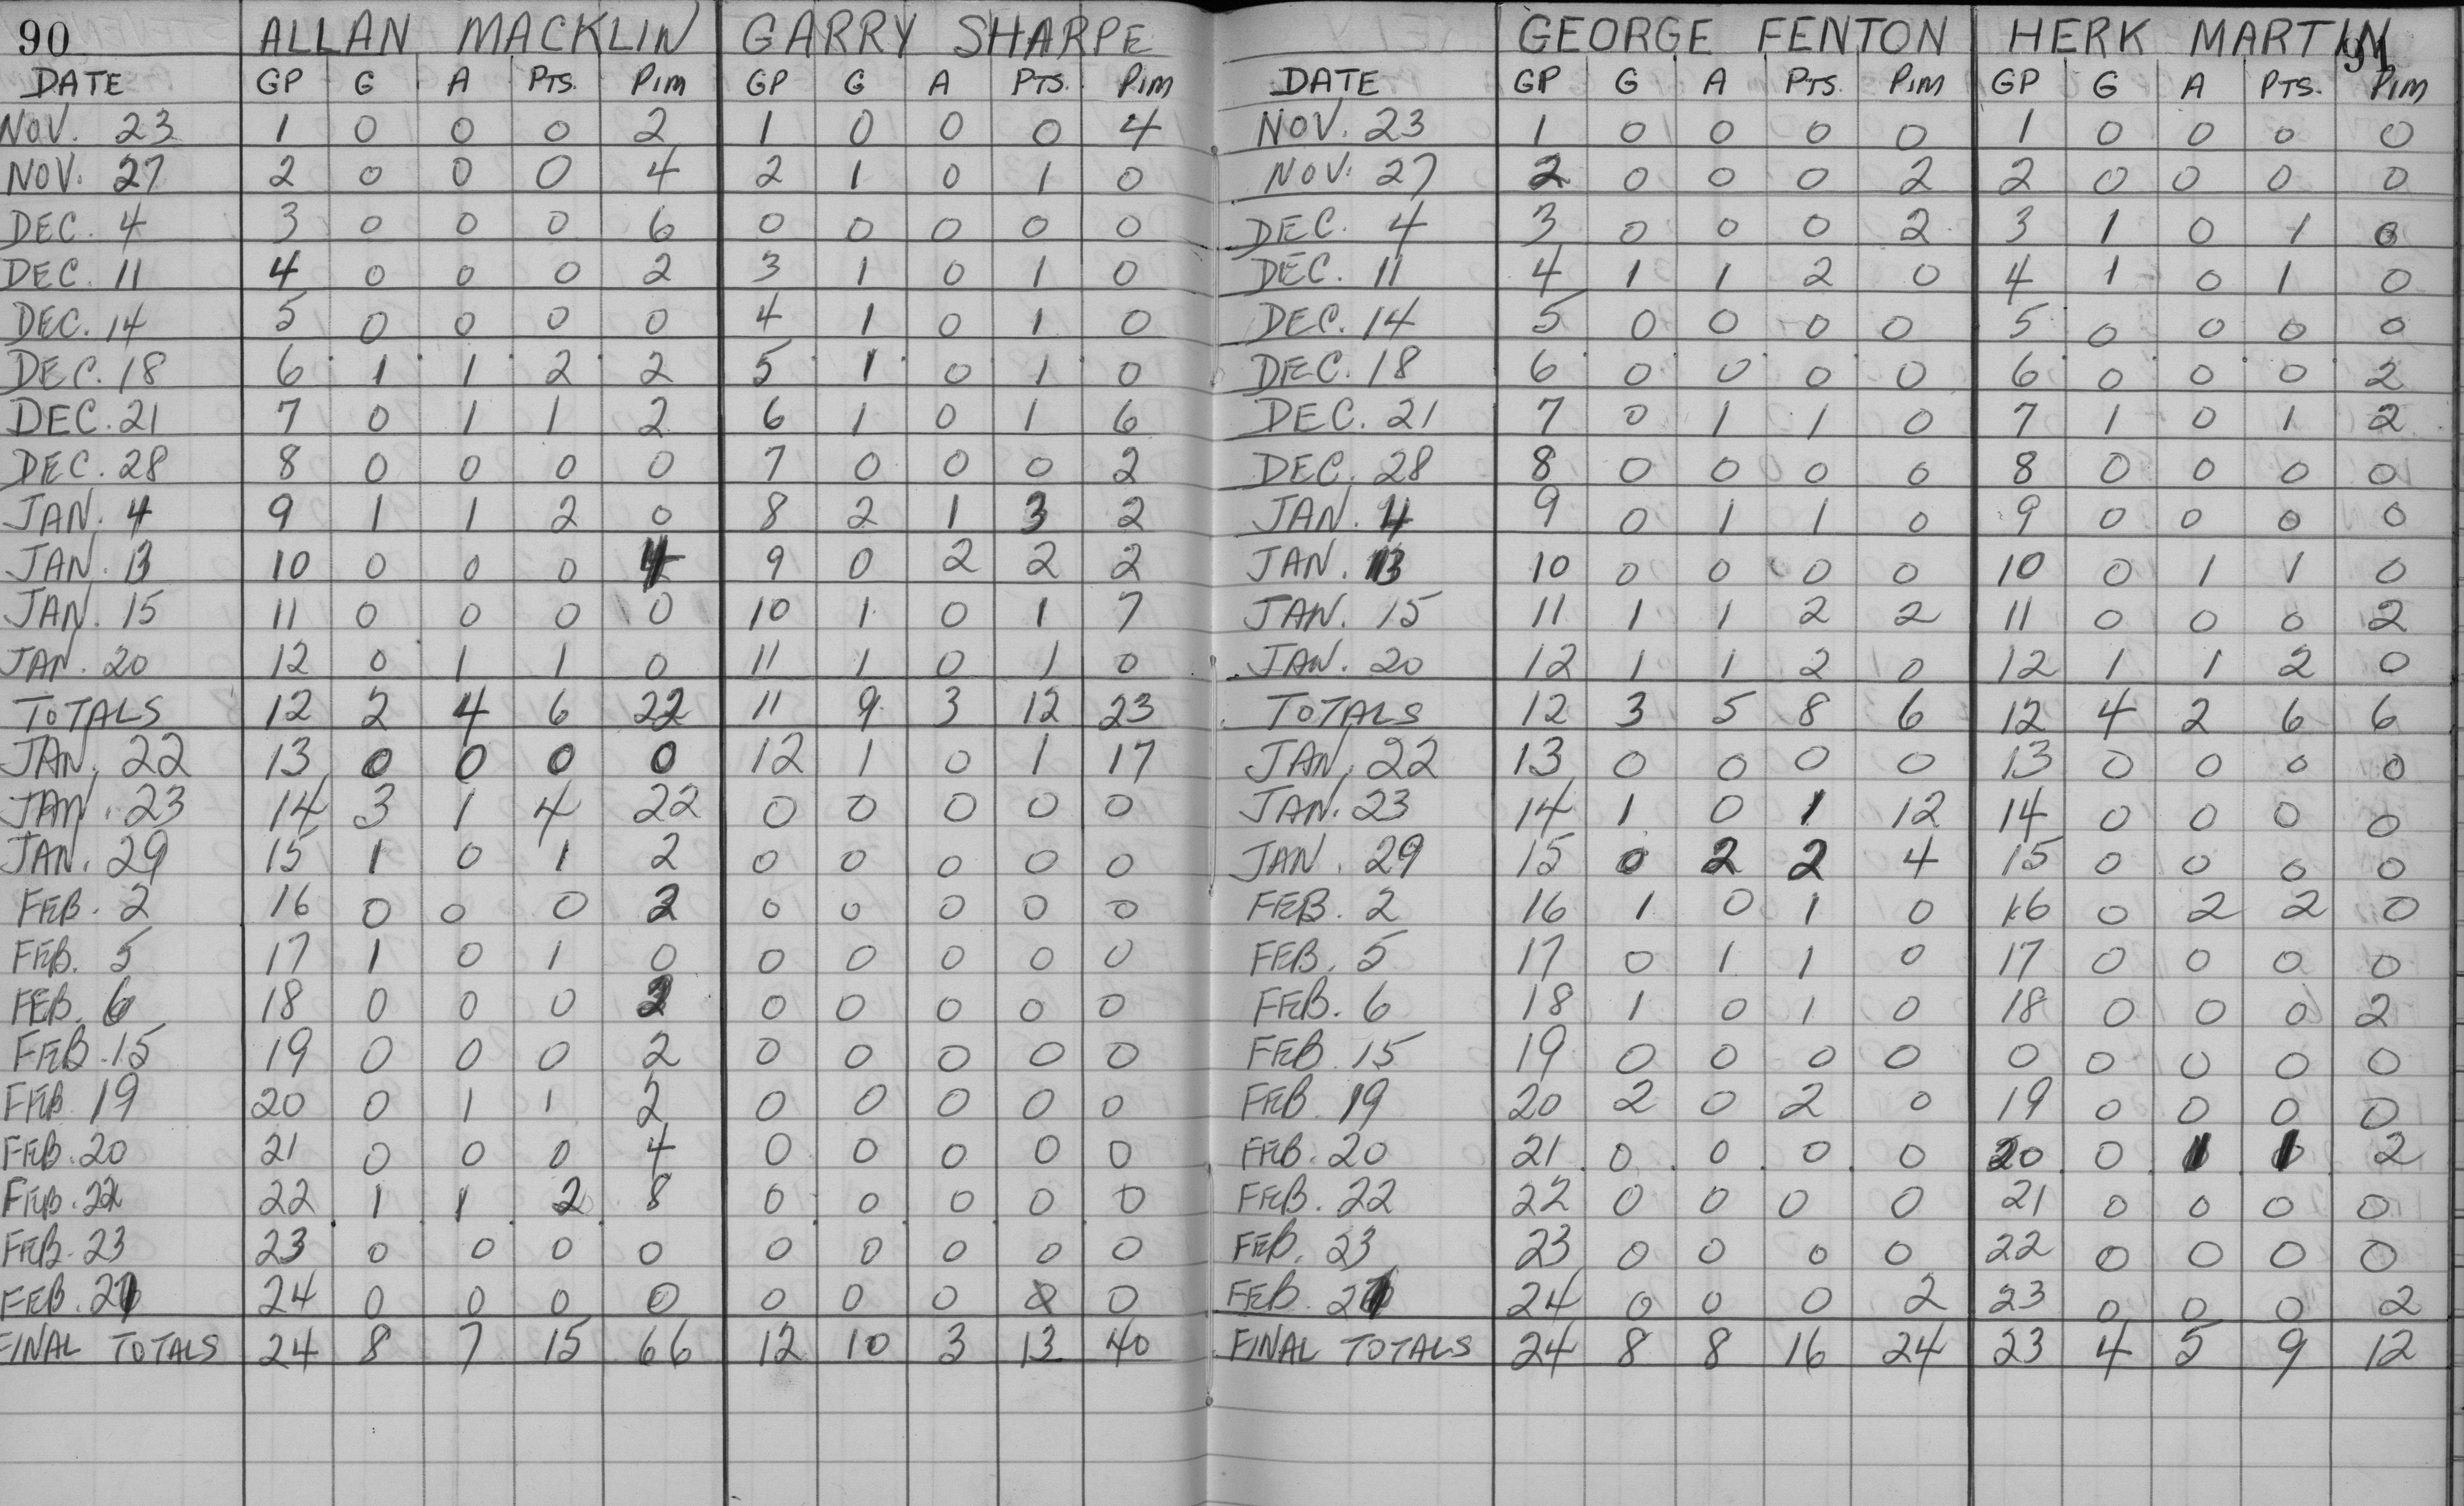 90 ALLAN MACKLIN GARRY SHARPE
DATE GP G A PTS. PIM GP G A PTS. PIM
NOV. 23 1 0 0 0 2 1 0 0 0 4
NOV. 27 2 0 0 0 4 2 1 0 1 0
DEC. 4 3 0 0 0 6 0 0 0 0 0
DEC. 11 4 0 0 0 2 3 1 0 1 0
DEC. 14 5 0 0 0 0 4 1 0 1 0
DEC. 18 6 1 1 2 2 5 1 0 1 0
DEC. 21 7 0 1 1 2 6 1 0 1 6
DEC. 28 8 0 0 0 0 7 0 0 0 2
JAN. 4 9 1 1 2 0 8 2 1 3 2
JAN. 13 10 0 0 0 4 9 0 2 2 2
JAN. 15 11 0 0 0 0 10 1 0 1 7
JAN. 20 12 0 1 1 0 11 1 0 1 0
TOTALS 12 2 4 6 22 11 9 3 12 23
JAN. 22 13 0 0 0 0 12 1 0 1 17
JAN. 23 14 3 1 4 22 0 0 0 0 0
JAN. 29 15 1 0 1 2 0 0 0 0 0
FEB. 2 16 0 0 0 2 0 0 0 0 0
FEB. 5 17 1 0 1 0 0 0 0 0 0
FEB. 6 18 0 0 0 2 0 0 0 0 0
FEB. 15 19 0 0 0 2 0 0 0 0 0
FEB 19 20 0 1 1 2 0 0 0 0 0
FEB. 20 21 0 0 0 4 0 0 0 0 0
FEB. 22 22 1 1 2 8 0 0 0 0 0
FEB. 23 23 0 0 0 0 0 0 0 0 0
FEB. 24 0 0 0 0 0 0 0 0 0
FINAL TOTALS 24 8 7 15 66 12 10 3 13 40
GEORGE FENTON HERK MARTIN 91
DATE GP G A PTS. PIM GP G A PTS. PIM
NOV. 23 1 0 0 0 0 1 0 0 0 0
NOV. 27 2 0 0 0 2 2 0 0 0 0
DEC. 4 3 0 0 0 2 3 1 0 1 0
DEC. 11 4 1 1 2 0 4 1 0 1 0
DEC. 14 5 0 0 0 0 5 0 0 0 0
DEC. 18 6 0 0 0 0 6 0 0 0 2
DEC. 21 7 0 1 1 0 7 1 0 1 2
DEC. 28 8 0 0 0 0 8 0 0 0 0
JAN. 4 9 0 1 1 0 9 0 0 0 0
JAN. 13 10 0 0 0 0 10 0 1 1 0
JAN. 15 11 1 1 2 2 11 0 0 0 2
JAN. 20 12 1 1 2 0 12 1 1 2 0
TOTALS 12 3 5 8 6 12 4 2 6 6
JAN. 22 13 0 0 0 0 13 0 0 0 0
JAN. 23 14 1 0 1 12 14 0 0 0 0
JAN. 29 15 0 2 2 4 15 0 0 0 0
FEB. 2 16 1 0 1 0 16 0 2 2 0
FEB. 5 17 0 1 1 0 17 0 0 0 0
FEB. 6 18 1 0 1 0 18 0 0 0 2
FEB 15 19 0 0 0 0 0 0 0 0 0
FEB. 19 20 2 0 2 0 19 0 0 0 0
FEB. 20 21 0 0 0 0 20 0 1 1 2
FEB. 22 22 0 0 0 0 21 0 0 0 0
FEB. 23 23 0 0 0 0 22 0 0 0 0
FEB. 24 0 0 0 2 23 0 0 0 2
FINAL TOTALS 24 8 8 16 24 23 4 5 9 12